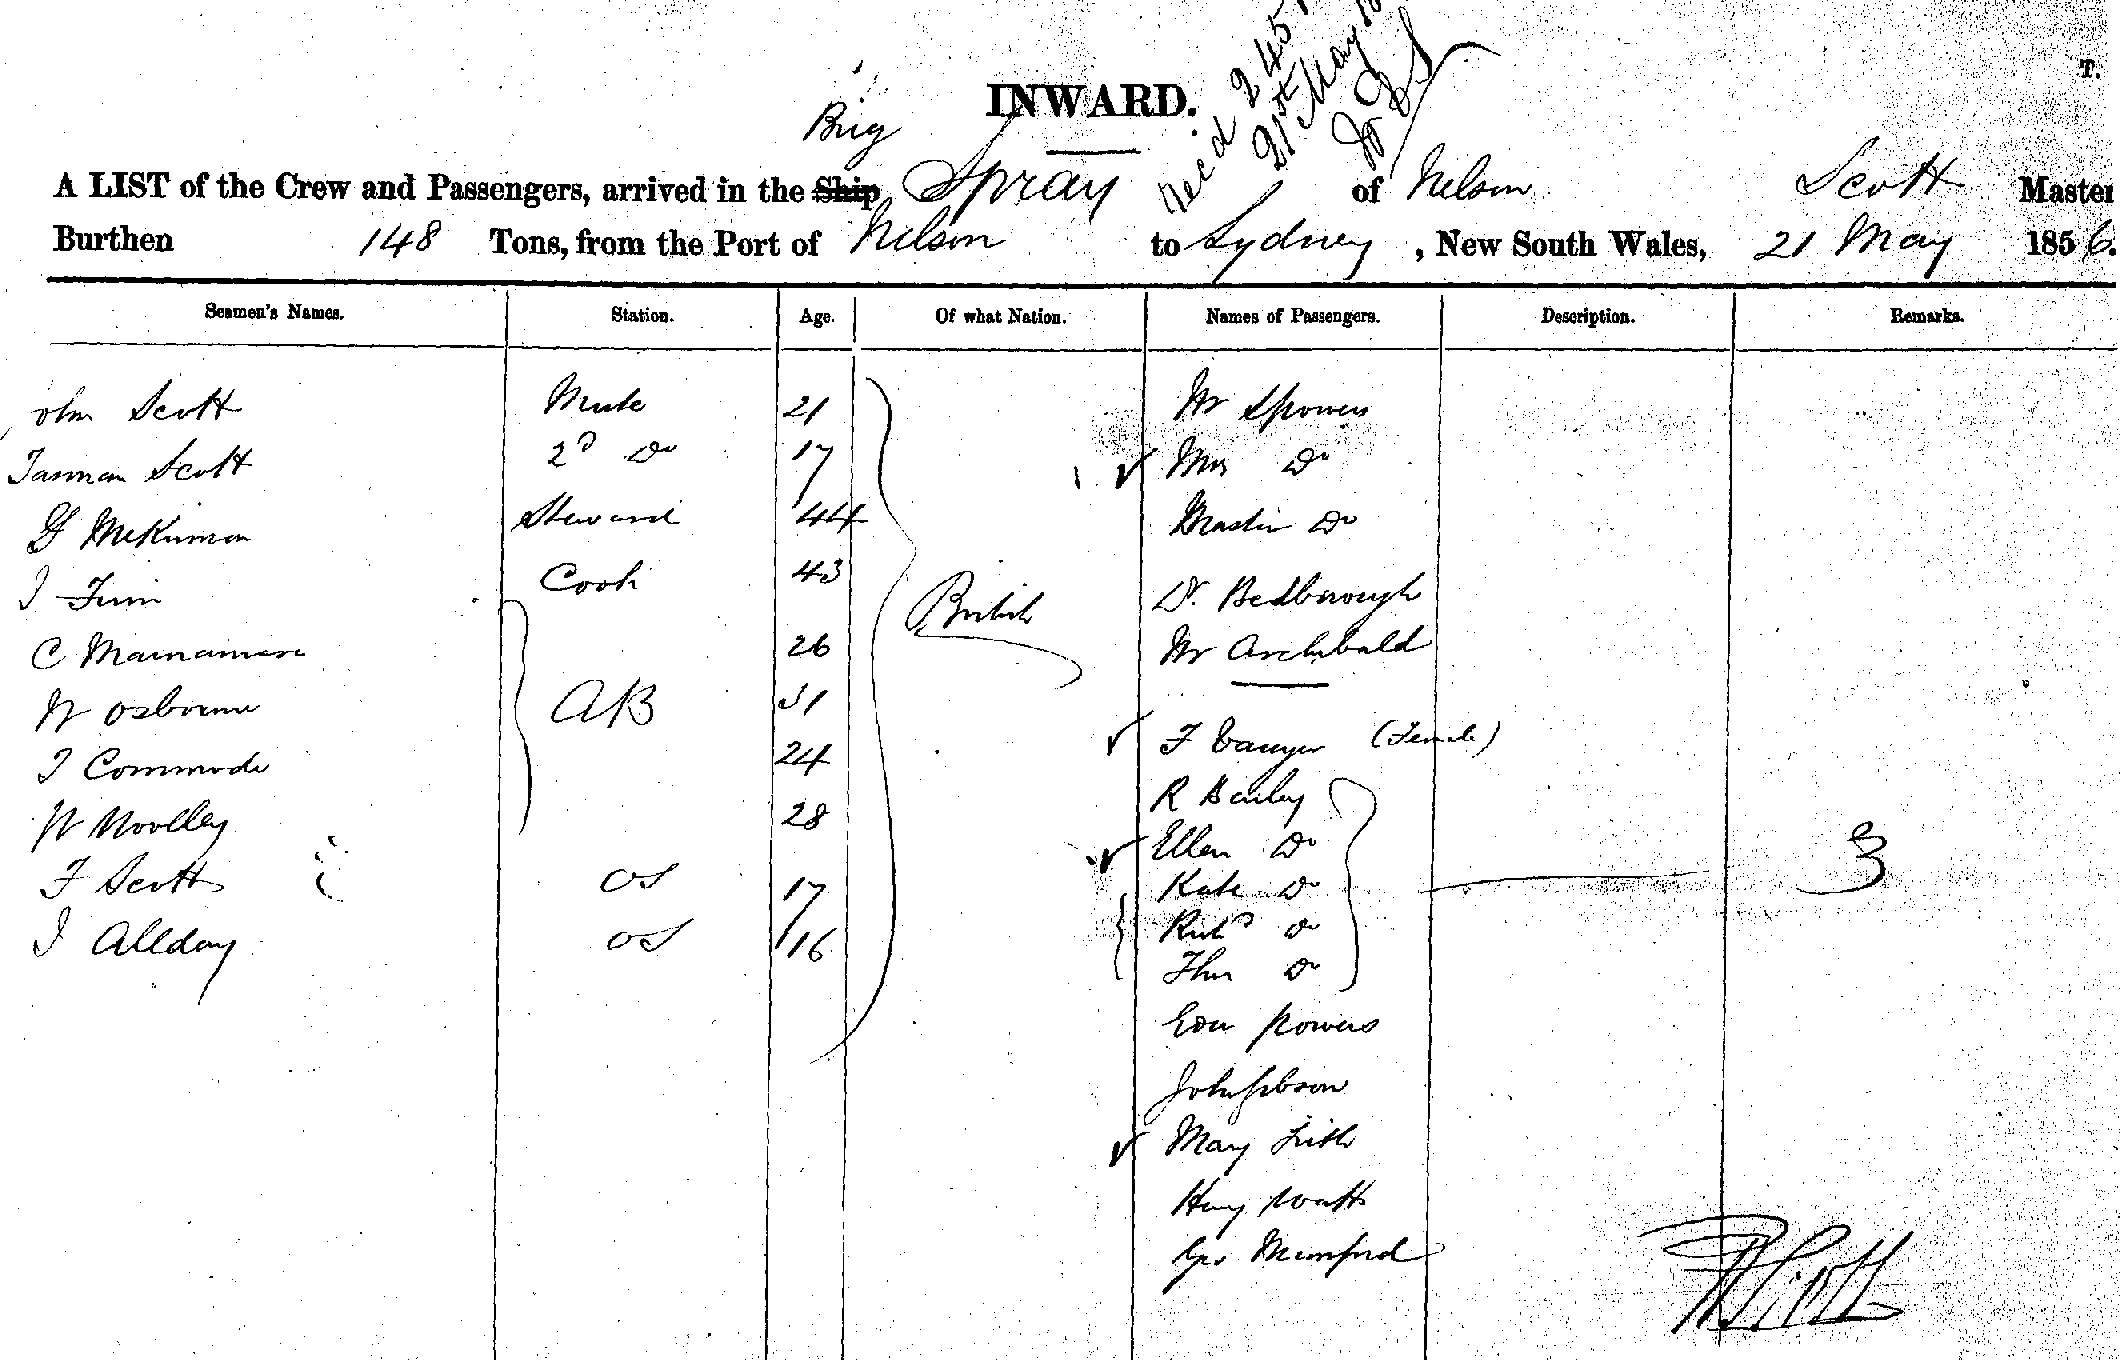 T.
Rec'd 245
21st May
INWARD.
Brig
A LIST of the Crew and Passengers, arrived in the Ship Spray of Nelson Scott Master
Burthen 148 Tons, from the Port of Nelson to Sydney, New South Wales, 21 May 1856.
Seamen's Names. Station. Age. Of what Nation. Names of Passengers. Description. Remarks.
John Scott Mate 21 Mr Spowers
Tasman Scott 2d Do 17 Mrs Do
McKinnon Steward 44 Master Do
Cook 43 British Dr. Bedborough
C 26 Mr Archibald
W Osborne AB 31
F (Female)
Commode 24 R Benley
W Woolley 28 Ellen Do
F Scott OS 17 Kate Do 3
J Allday OS 16 Richd Do
Thos Do
Edw Powers
John Gibson
Mary Frith
Henry Watt
Geo Mumford
Scott